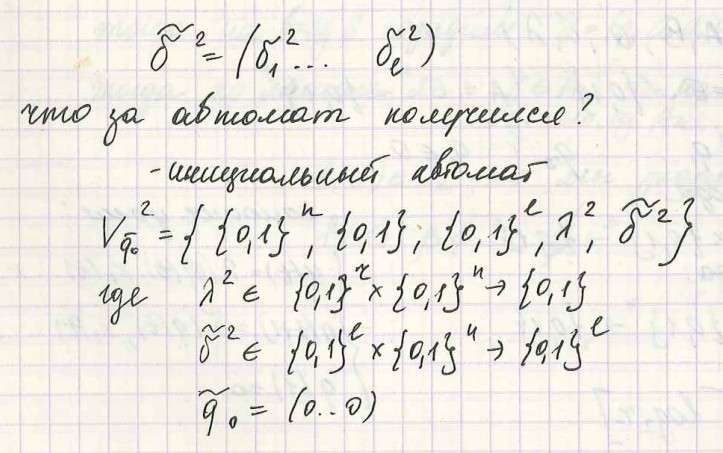 δ̃² = (δ₁² ... δₑ²)
что за автомат получился?
- инициальный автомат
V²_q̃₀ = { {0,1}ⁿ, {0,1}, {0,1}ˡ, λ², δ̃² }
где λ² ∈ {0,1}ʳ × {0,1}ⁿ → {0,1}
δ̃² ∈ {0,1}ˡ × {0,1}ⁿ → {0,1}ˡ
q̃₀ = (0..0)